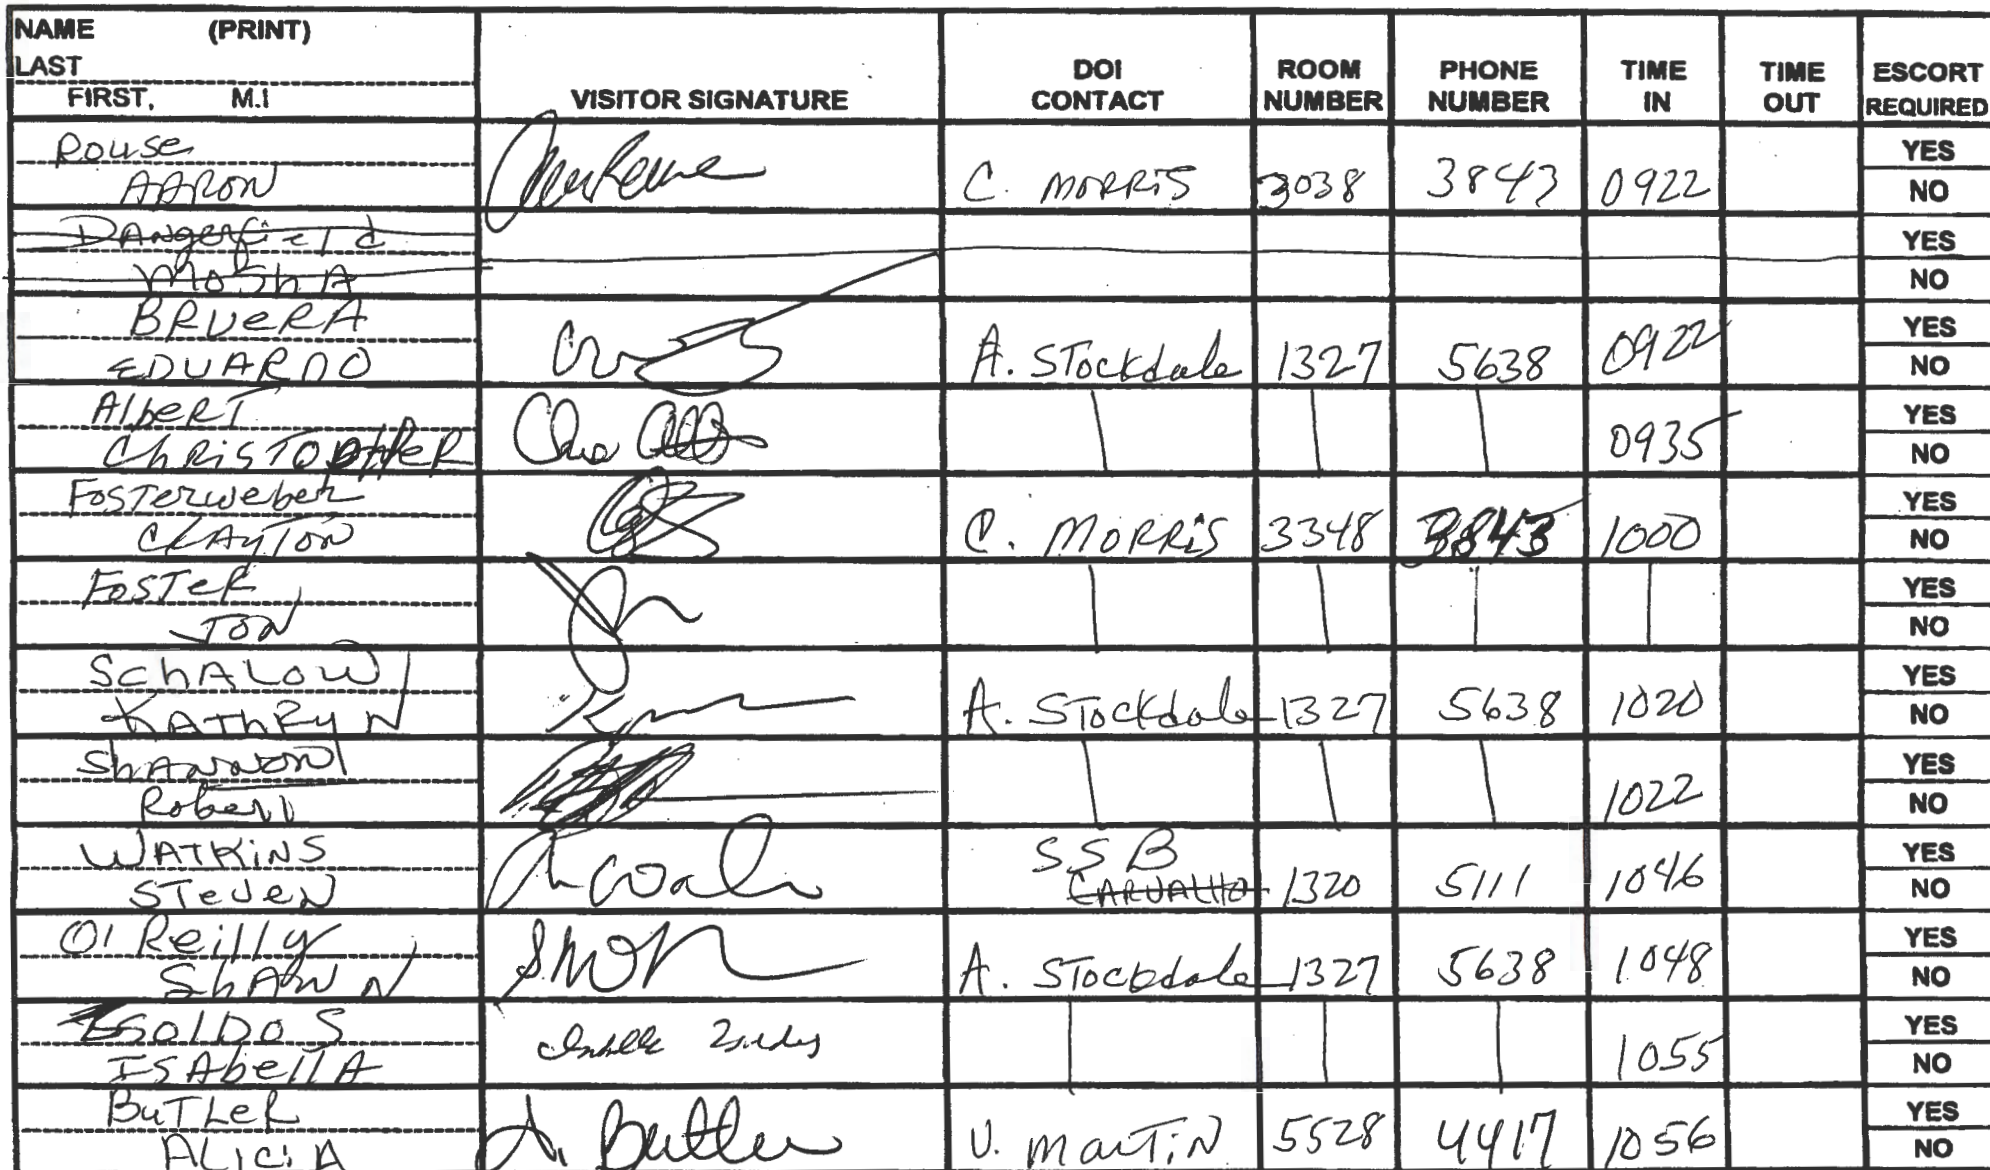 NAME (PRINT)
LAST
FIRST, M.I
VISITOR SIGNATURE
DOI CONTACT
ROOM NUMBER
PHONE NUMBER
TIME IN
TIME OUT
ESCORT REQUIRED
Rouse
AARON
C. MORRIS 3038 3843 0922 YES NO
Dangerfield
MoshA
YES NO
BRUERA
EDUARDO
A. Stockdale 1327 5638 0922 YES NO
Albert
ChRISTOPHER
0935 YES NO
Fosterweber
CLAYTON
C. MORRIS 3348 3843 1000 YES NO
FosTeR
JON
YES NO
SchALOW
KAThRyN
A. Stockdale 1327 5638 1020 YES NO
ShANNON
Robert
1022 YES NO
WATKINS
STeveN
SSB
CARVALHO 1320 5111 1046 YES NO
O'Reilly
ShAwN
A. Stockdale 1327 5638 1048 YES NO
IsAbellA
1055 YES NO
BuTLeR
ALiciA
A. Butler
V. MarTiN 5528 4417 1056 YES NO